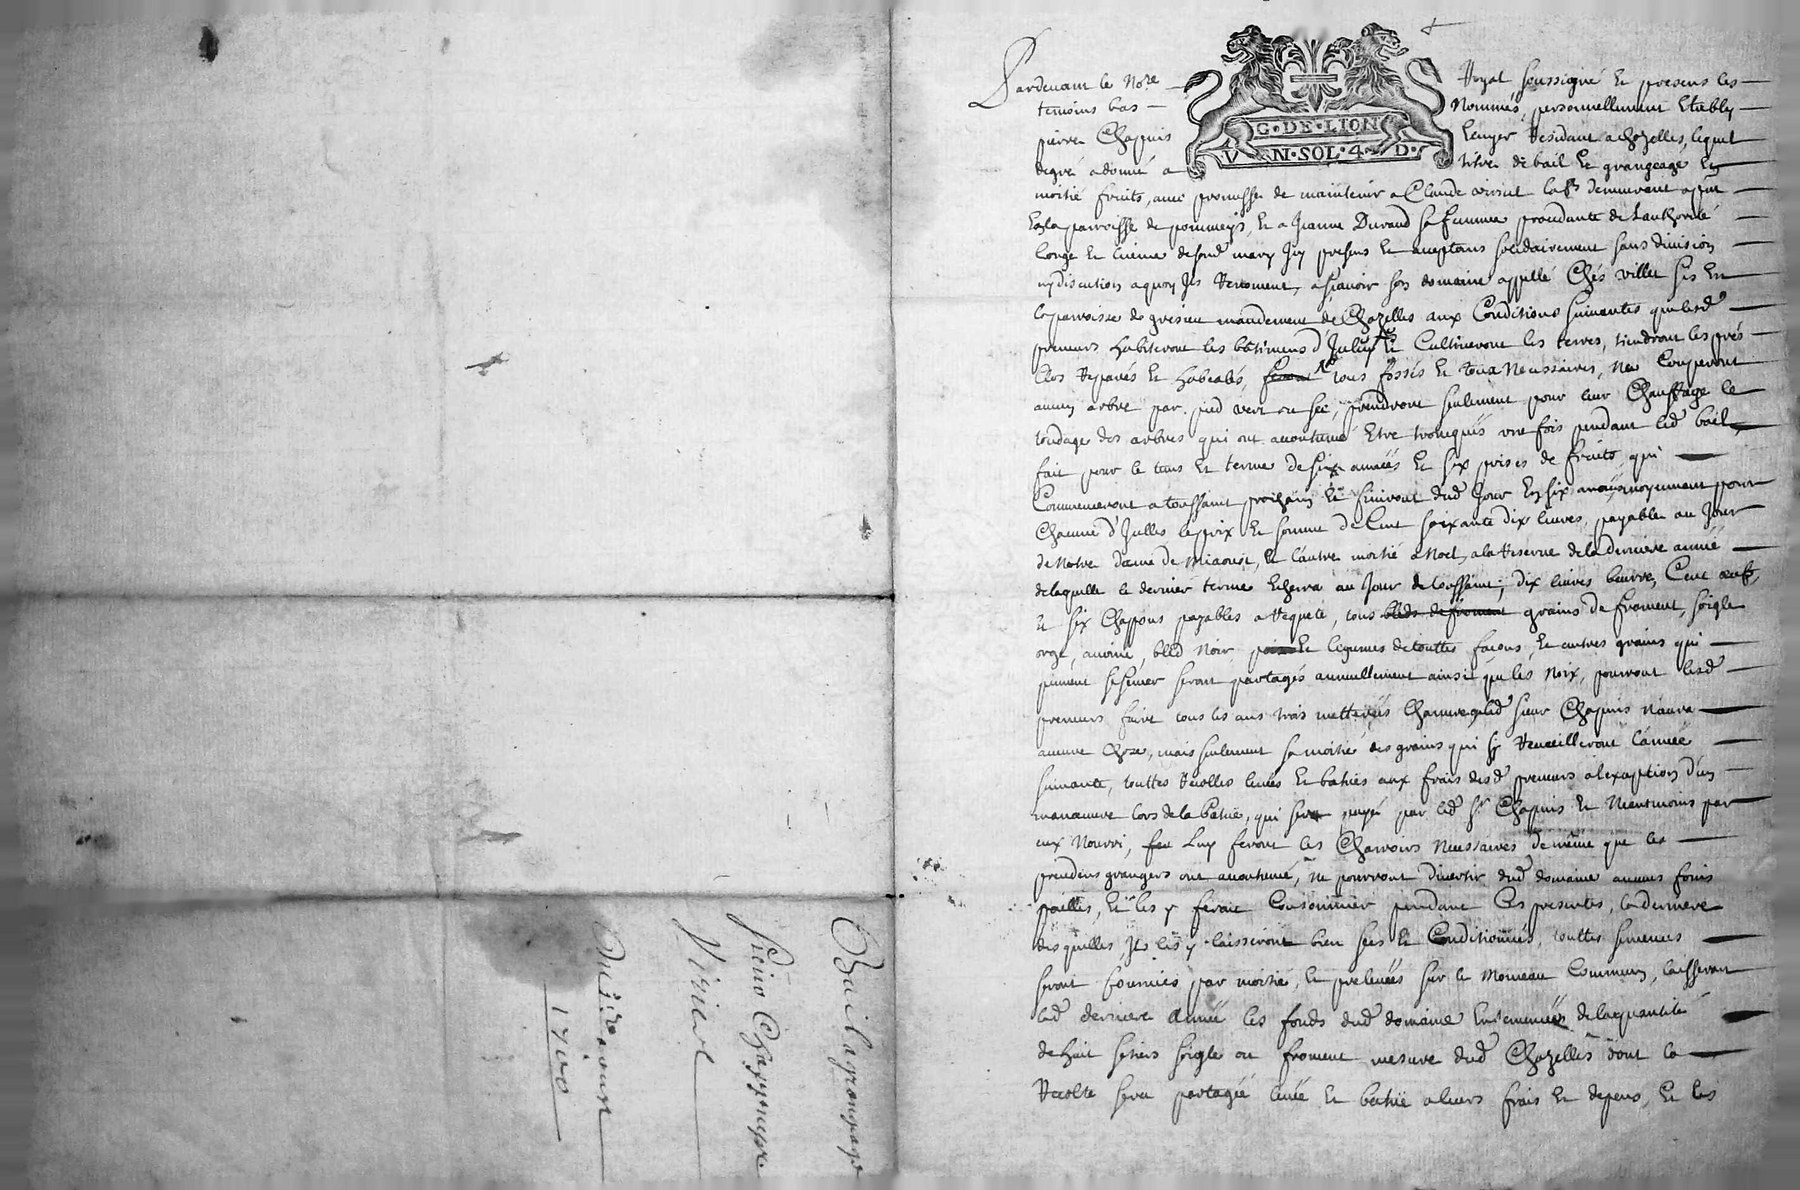 Pardevant le No.re Royal soussigné et presens les
temoins bas Nommés, personnellement Etably
pierre Chapuis Lenyer Residant a chazelles, lequel
degré a donné a titre de bail et grangeage En
moitié fruits, avec promesse de maintenir a Claude demeurant
En la parroisse de pommeys, et a Jeanne Durand sa femme procedante de Lauthorité
Congé et licence desond mary Icy presens et aceptans solidairement sans division
ny discution a quoy Ils Renoncent, a scavoir son domaine appellé Chés villet sis En
la parroisse de grezieu mandement de Chazelles aux Conditions suivantes que lesd
preneurs habiteront les bâtimens d'Iceluy et Cultiveront les terres, tiendront les prés
Clos Reparés et tous fossés et Necessaires, Ne Couperont
aucun arbre par pied vert ou sec, prendront seulement pour leur Chauffage le
tondage des arbres qui ont acoutumé Etre tronqués une fois pendant led bail,
fait pour le tems et terme de six années et six prises de fruits, qui
Commenceront a toussaint prochain et finiront dud Jour En six moyennant pour
Chacune d'Icelles le prix et somme de Cent soixante dix livres, payable au Jour
de Notre dame de Miaoust, et l'autre moitié a Noel, a la Reserve de la derniere année
de laquelle le dernier terme Echerra au Jour de toussaint; dix livres beurre, Cent œufs,
et six Chappons payables a Requete, tous bleds de froment grains de froment, soigle
orge, avoine, bled Noir et legumes de touttes facons, et autres grains qui
peuvent se semer seront partagés annuellement ainsi que les Noix, pourront lesd
preneurs faire tous les ans trois metterées Chanvre que led sieur Chapuis n'aura
aucune chose, mais seulement sa moitié des grains qui s'y Recueilleront l'année
suivante, touttes Recoltes levées et batues aux frais desd preneurs a l'exception d'un
manœuvre lors de la Batue, qui sera payé par led Sr Chapuis et Neantmoins par
eux Nourri, Luy feront les Charrois Necessaires de même que les
precedens grangers ont acoutumé, ne pourront divertir dud domaine aucuns foins
pailles, et les y feront Consommer pendant Ces presentes, la derniere
desquelles, Ils les y laisseront bien secs et Conditionnés, touttes semences
seront fournies par moitié, et prelevées sur le Monceau Commun, laisseront
lad derniere année les fonds dud domaine Ensemencés de la quantité
de huit setiers soigle ou froment mesure dud Chazelles dont la
Recolte sera partagée levée et batue a leurs frais et depens, et les
G·DE·LION
VN·SOL·4·D·
Bail a grangeage
1700